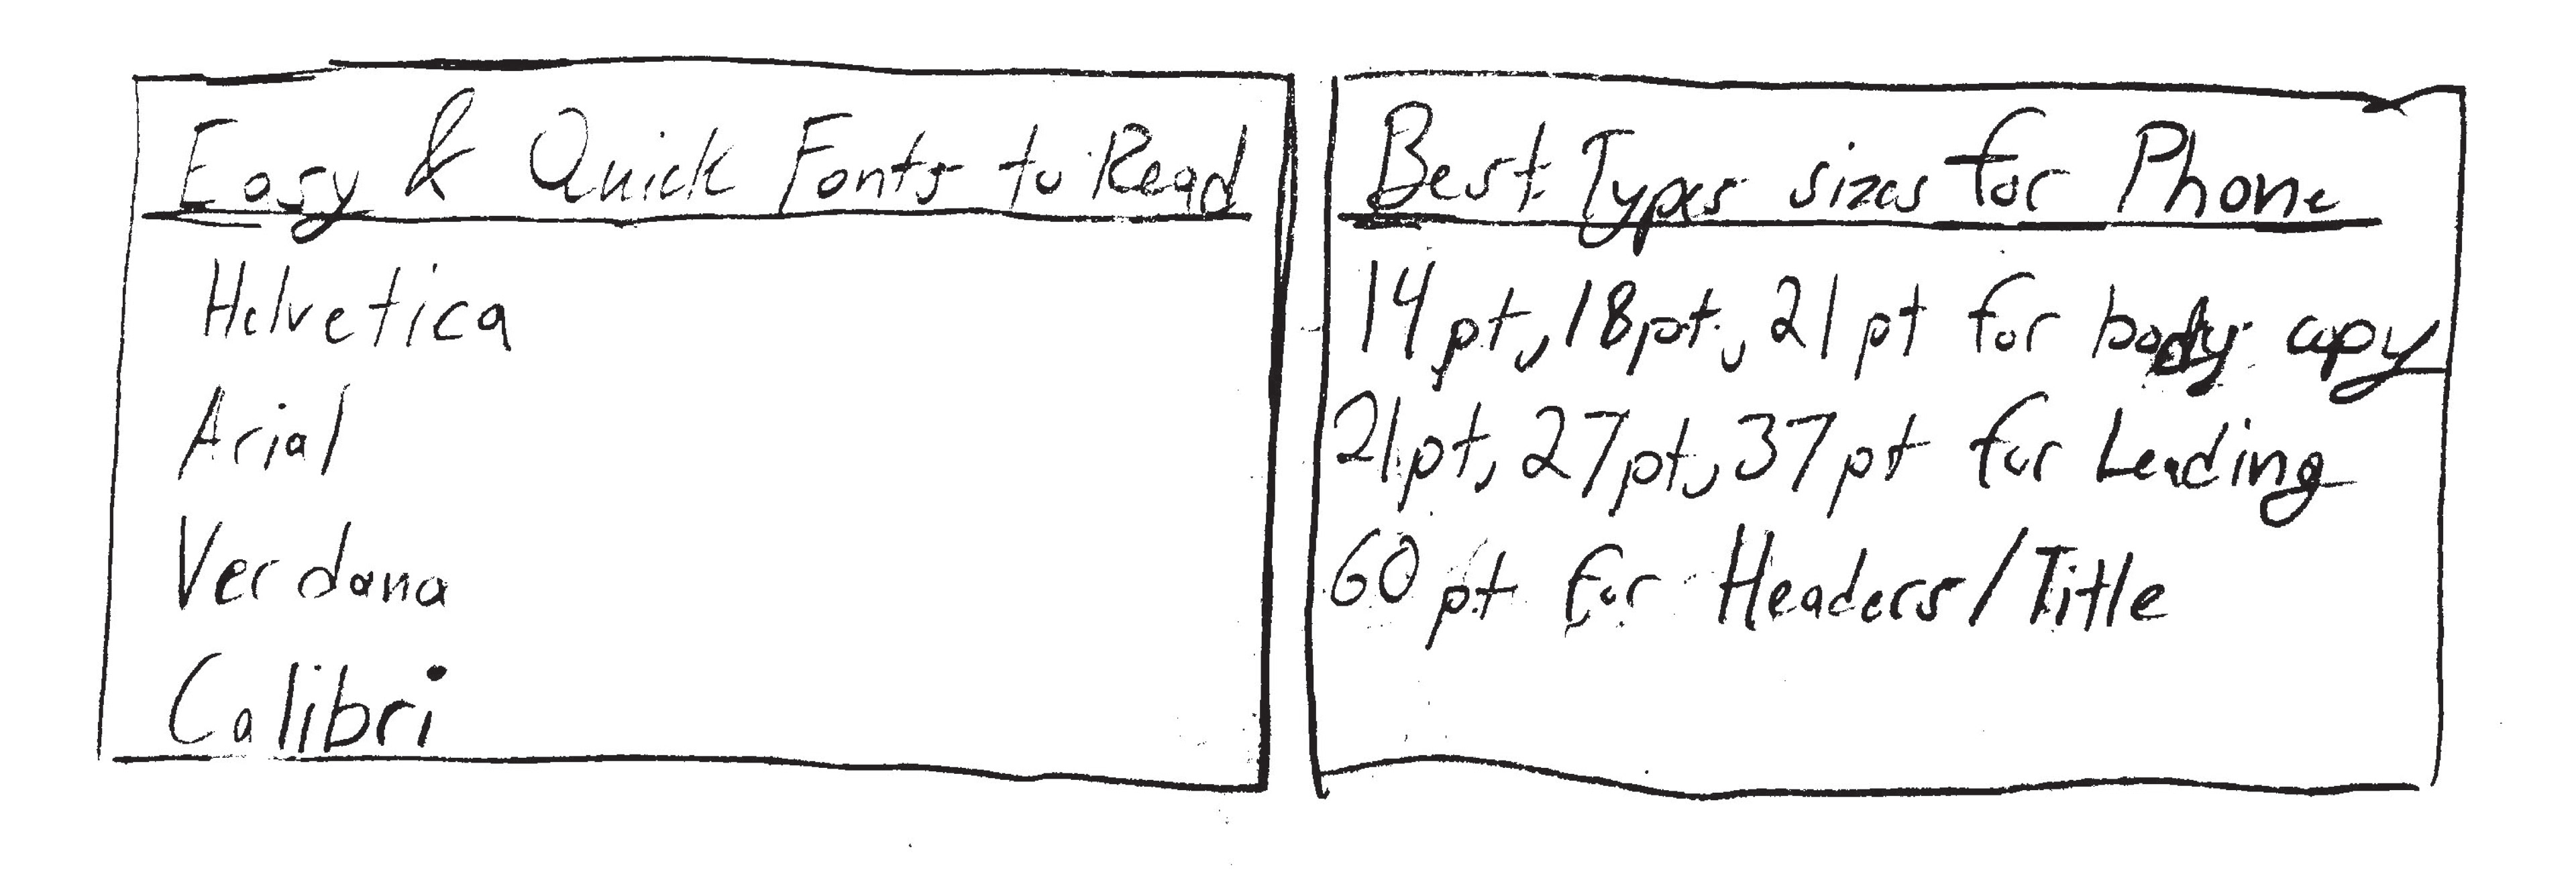 Easy & Quick Fonts to Read
Helvetica
Arial
Verdana
Calibri
Best Types sizes for Phone
14 pt, 18pt, 21 pt for body copy
21pt, 27pt, 37pt for Leading
60 pt for Headers/Title